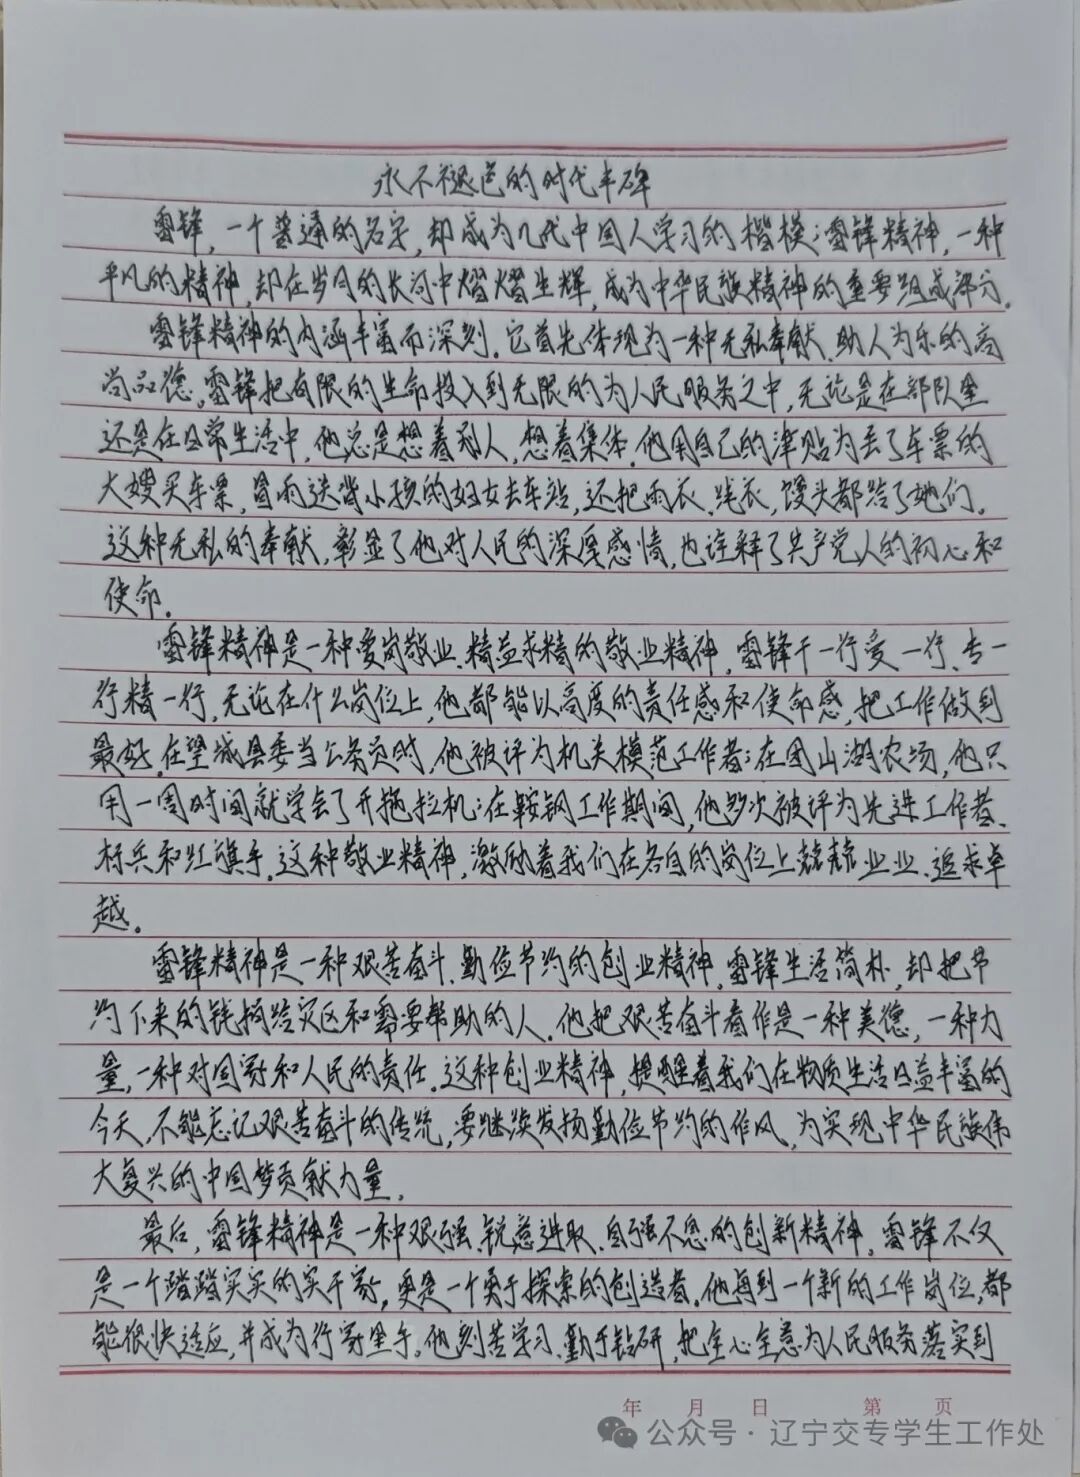 永不褪色的时代丰碑
雷锋，一个普通的名字，却成为几代中国人学习的楷模；雷锋精神，一种
平凡的精神，却在岁月的长河中熠熠生辉，成为中华民族精神的重要组成部分。
雷锋精神的内涵丰富而深刻。它首先体现为一种无私奉献、助人为乐的高
尚品德。雷锋把有限的生命投入到无限的为人民服务之中，无论是在部队里
还是在日常生活中，他总是想着别人，想着集体。他用自己的津贴为丢了车票的
大嫂买车票，冒雨送背小孩的妇女去车站，还把雨衣、毛衣、馒头都给了她们。
这种无私的奉献，彰显了他对人民的深度感情，也诠释了共产党人的初心和
使命。
雷锋精神是一种爱岗敬业、精益求精的敬业精神，雷锋干一行爱一行、专一
行精一行，无论在什么岗位上，他都能以高度的责任感和使命感，把工作做到
最好。在望城县委当公务员时，他被评为机关模范工作者；在团山湖农场，他只
用一周时间就学会了开拖拉机；在鞍钢工作期间，他多次被评为先进工作者、
标兵和红旗手。这种敬业精神，激励着我们在各自的岗位上兢兢业业、追求卓
越。
雷锋精神是一种艰苦奋斗、勤俭节约的创业精神，雷锋生活简朴，却把节
约下来的钱捐给灾区和需要帮助的人。他把艰苦奋斗看作是一种美德，一种力
量，一种对国家和人民的责任。这种创业精神，提醒着我们在物质生活日益丰富的
今天，不能忘记艰苦奋斗的传统，要继续发扬勤俭节约的作风，为实现中华民族伟
大复兴的中国梦贡献力量。
最后，雷锋精神是一种艰强、锐意进取、自强不息的创新精神，雷锋不仅
是一个踏踏实实的实干家，更是一个勇于探索的创造者。他每到一个新的工作岗位，都
能很快适应，并成为行家里手。他刻苦学习、勤于钻研，把全心全意为人民服务落实到
年 月 日 第 页
公众号·辽宁交专学生工作处